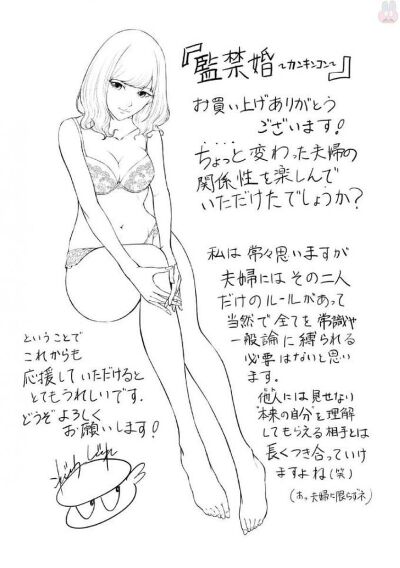 『監禁婚～カンキンコン～』
お買い上げありがとう
ございます!
ちょっと変わった夫婦の
関係性を楽しんで
いただけたでしょうか?
私は常々思いますが
夫婦にはその二人
だけのルールがあって
当然で全てを常識や
一般論に縛られる
必要はないと思い
ます。
他人には見せない
"本来の自分"を理解
してもらえる相手とは
長くつき合っていけ
ますよね(笑)
(あ、夫婦に限らずネ)
ということで
これからも
応援していただけると
とてもうれしいです.
どうぞよろしく
お願いします!